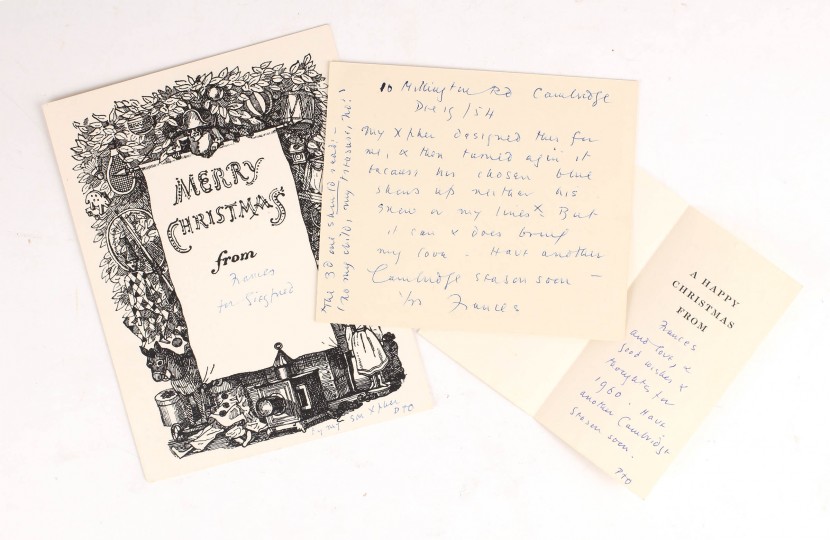 MERRY
CHRISTMAS
from
Frances
for Siegfried
by my son Xpher
PTO
10 Millington Rd Cambridge
Dec 19/54
My Xpher designed this for
me, & then turned agin it
because his chosen blue
shows up neither his
snow or my lines x. But
it can & does bring
my love. Have another
Cambridge season soon —
Frances
The 3d one should read:—
to my child, my treasure, he!
A HAPPY
CHRISTMAS
FROM
Frances
and love, &
good wishes &
thoughts for
1960. Have
another Cambridge
season soon.
PTO